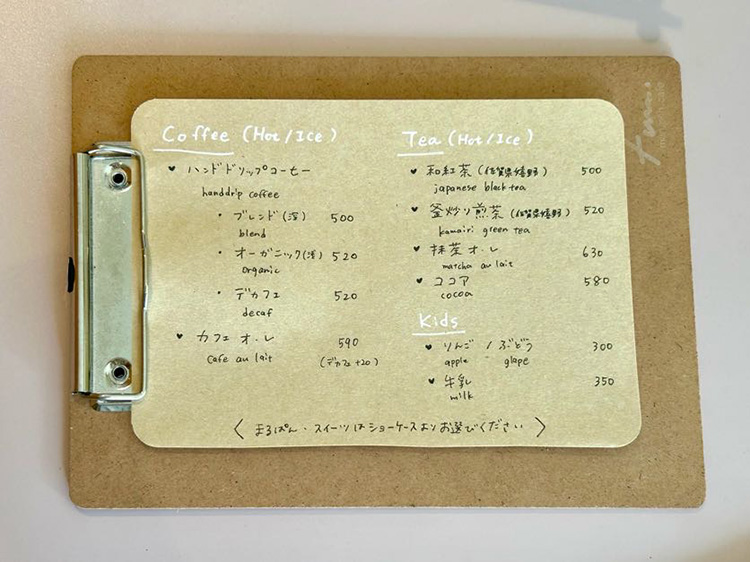 Coffee (Hot/Ice)
♥ ハンドドリップコーヒー
handdrip coffee
・ブレンド(深) 500
blend
・オーガニック(浅) 520
organic
・デカフェ 520
decaf
♥ カフェオ・レ 590
cafe au lait (デカフェ+20)
Tea (Hot/Ice)
♥ 和紅茶 (佐賀県嬉野) 500
japanese black tea
♥ 釜炒り煎茶 (佐賀県嬉野) 520
kamairi green tea
♥ 抹茶オ・レ 630
matcha au lait
♥ ココア 580
cocoa
Kids
♥ りんご / ぶどう 300
apple glape
♥ 牛乳 350
milk
〈 まるぱん・スイーツはショーケースよりお選びください 〉